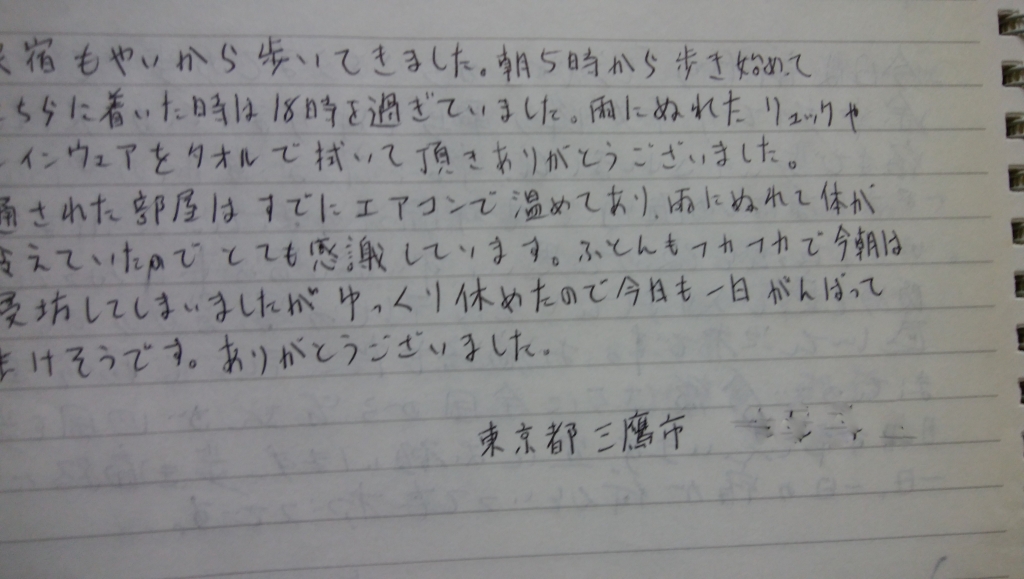 宿もやいから歩いてきました。朝5時から歩き始めて
ちらに着いた時は18時を過ぎていました。雨にぬれたリュックや
インウェアをタオルで拭いて頂きありがとうございました。
通された部屋はすでにエアコンで温めてあり、雨にぬれて体が
冷えていたのでとても感謝しています。ふとんもフカフカで今朝は
坊してしまいましたがゆっくり休めたので今日も一日がんばって
けそうです。ありがとうございました。
東京都三鷹市